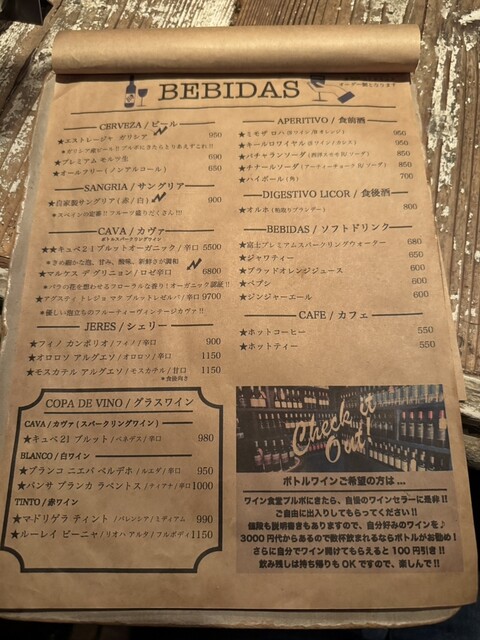 BEBIDAS
オーダー制となります
CERVEZA / ビール
★エストレージャ ガリシア 950
★ガリシア産ビール!! プルポにきたらとりあえずこれ!!
★プレミアム モルツ生 600
★オールフリー (ノンアルコール) 650
SANGRIA / サングリア
★自家製サングリア (赤/白) 900
★スペインの定番!! フルーツ盛りだくさん!!!
CAVA / カヴァ
ボトルスパークリングワイン
★★キュベ21ブルットオーガニック/辛口 5500
★きめ細かな泡、甘み、酸味、新鮮さが調和
★マルケス デ グリニョン/ロゼ辛口 6800
★バラの花を想わせるフローラルな香り!オーガニック認証!!
★アグスティ トレジョ マタ ブルットレゼルバ/辛口 9700
★優しい泡立ちのフルーティーヴィンテージカヴァ!!
JERES / シェリー
★フィノ カンボリオ/フィノ/辛口 900
★オロロソ アルグエソ/オロロソ/辛口 1150
★モスカテル アルグエソ/モスカテル/甘口 1150
★食後向き
COPA DE VINO / グラスワイン
CAVA / カヴァ (スパークリングワイン)
★キュベ21 ブルット/ペネデス/辛口 980
BLANCO / 白ワイン
★ブランコ ニエバ ベルデホ/ルエダ/辛口 950
★パンサ ブランカ ラベントス/ティアナ/辛口 1000
TINTO / 赤ワイン
★マドリゲラ ティント/バレンシア/ミディアム 990
★ルーレイ ビーニャ/リオハアルタ/フルボディ 1150
APERITIVO / 食前酒
★ミモザ ロハ (赤ワイン/赤オレンジ) 950
★キールロワイヤル (白ワイン/カシス) 950
★パチャランソーダ 850
★チナールソーダ (アーティーチョーク/ソーダ) 850
★ハイボール (角) 700
DIGESTIVO LICOR / 食後酒
★オルホ (粕取りブランデー) 800
BEBIDAS / ソフトドリンク
★富士プレミアムスパークリングウォーター 680
★ジャワティー 650
★ブラッドオレンジジュース 600
★ペプシ 600
★ジンジャーエール 600
CAFE / カフェ
★ホットコーヒー 550
★ホットティー 550
Check it
Out!
ボトルワインご希望の方は...
ワイン食堂プルポにきたら、自慢のワインセラーに是非!!
ご自由に出入りしてもらってください!!
値段も説明書きもありますので、自分好みのワインを♪
3000円代からあるので数杯飲まれるならボトルがお勧め!
さらに自分でワイン開けてもらえると100円引き!!
飲み残しは持ち帰りもOKですので、楽しんで!!